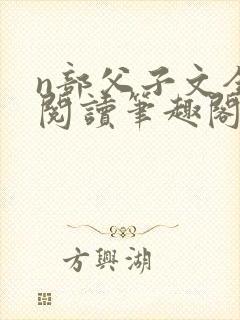 n部父子文全
閱讀筆趣閣
方興湖